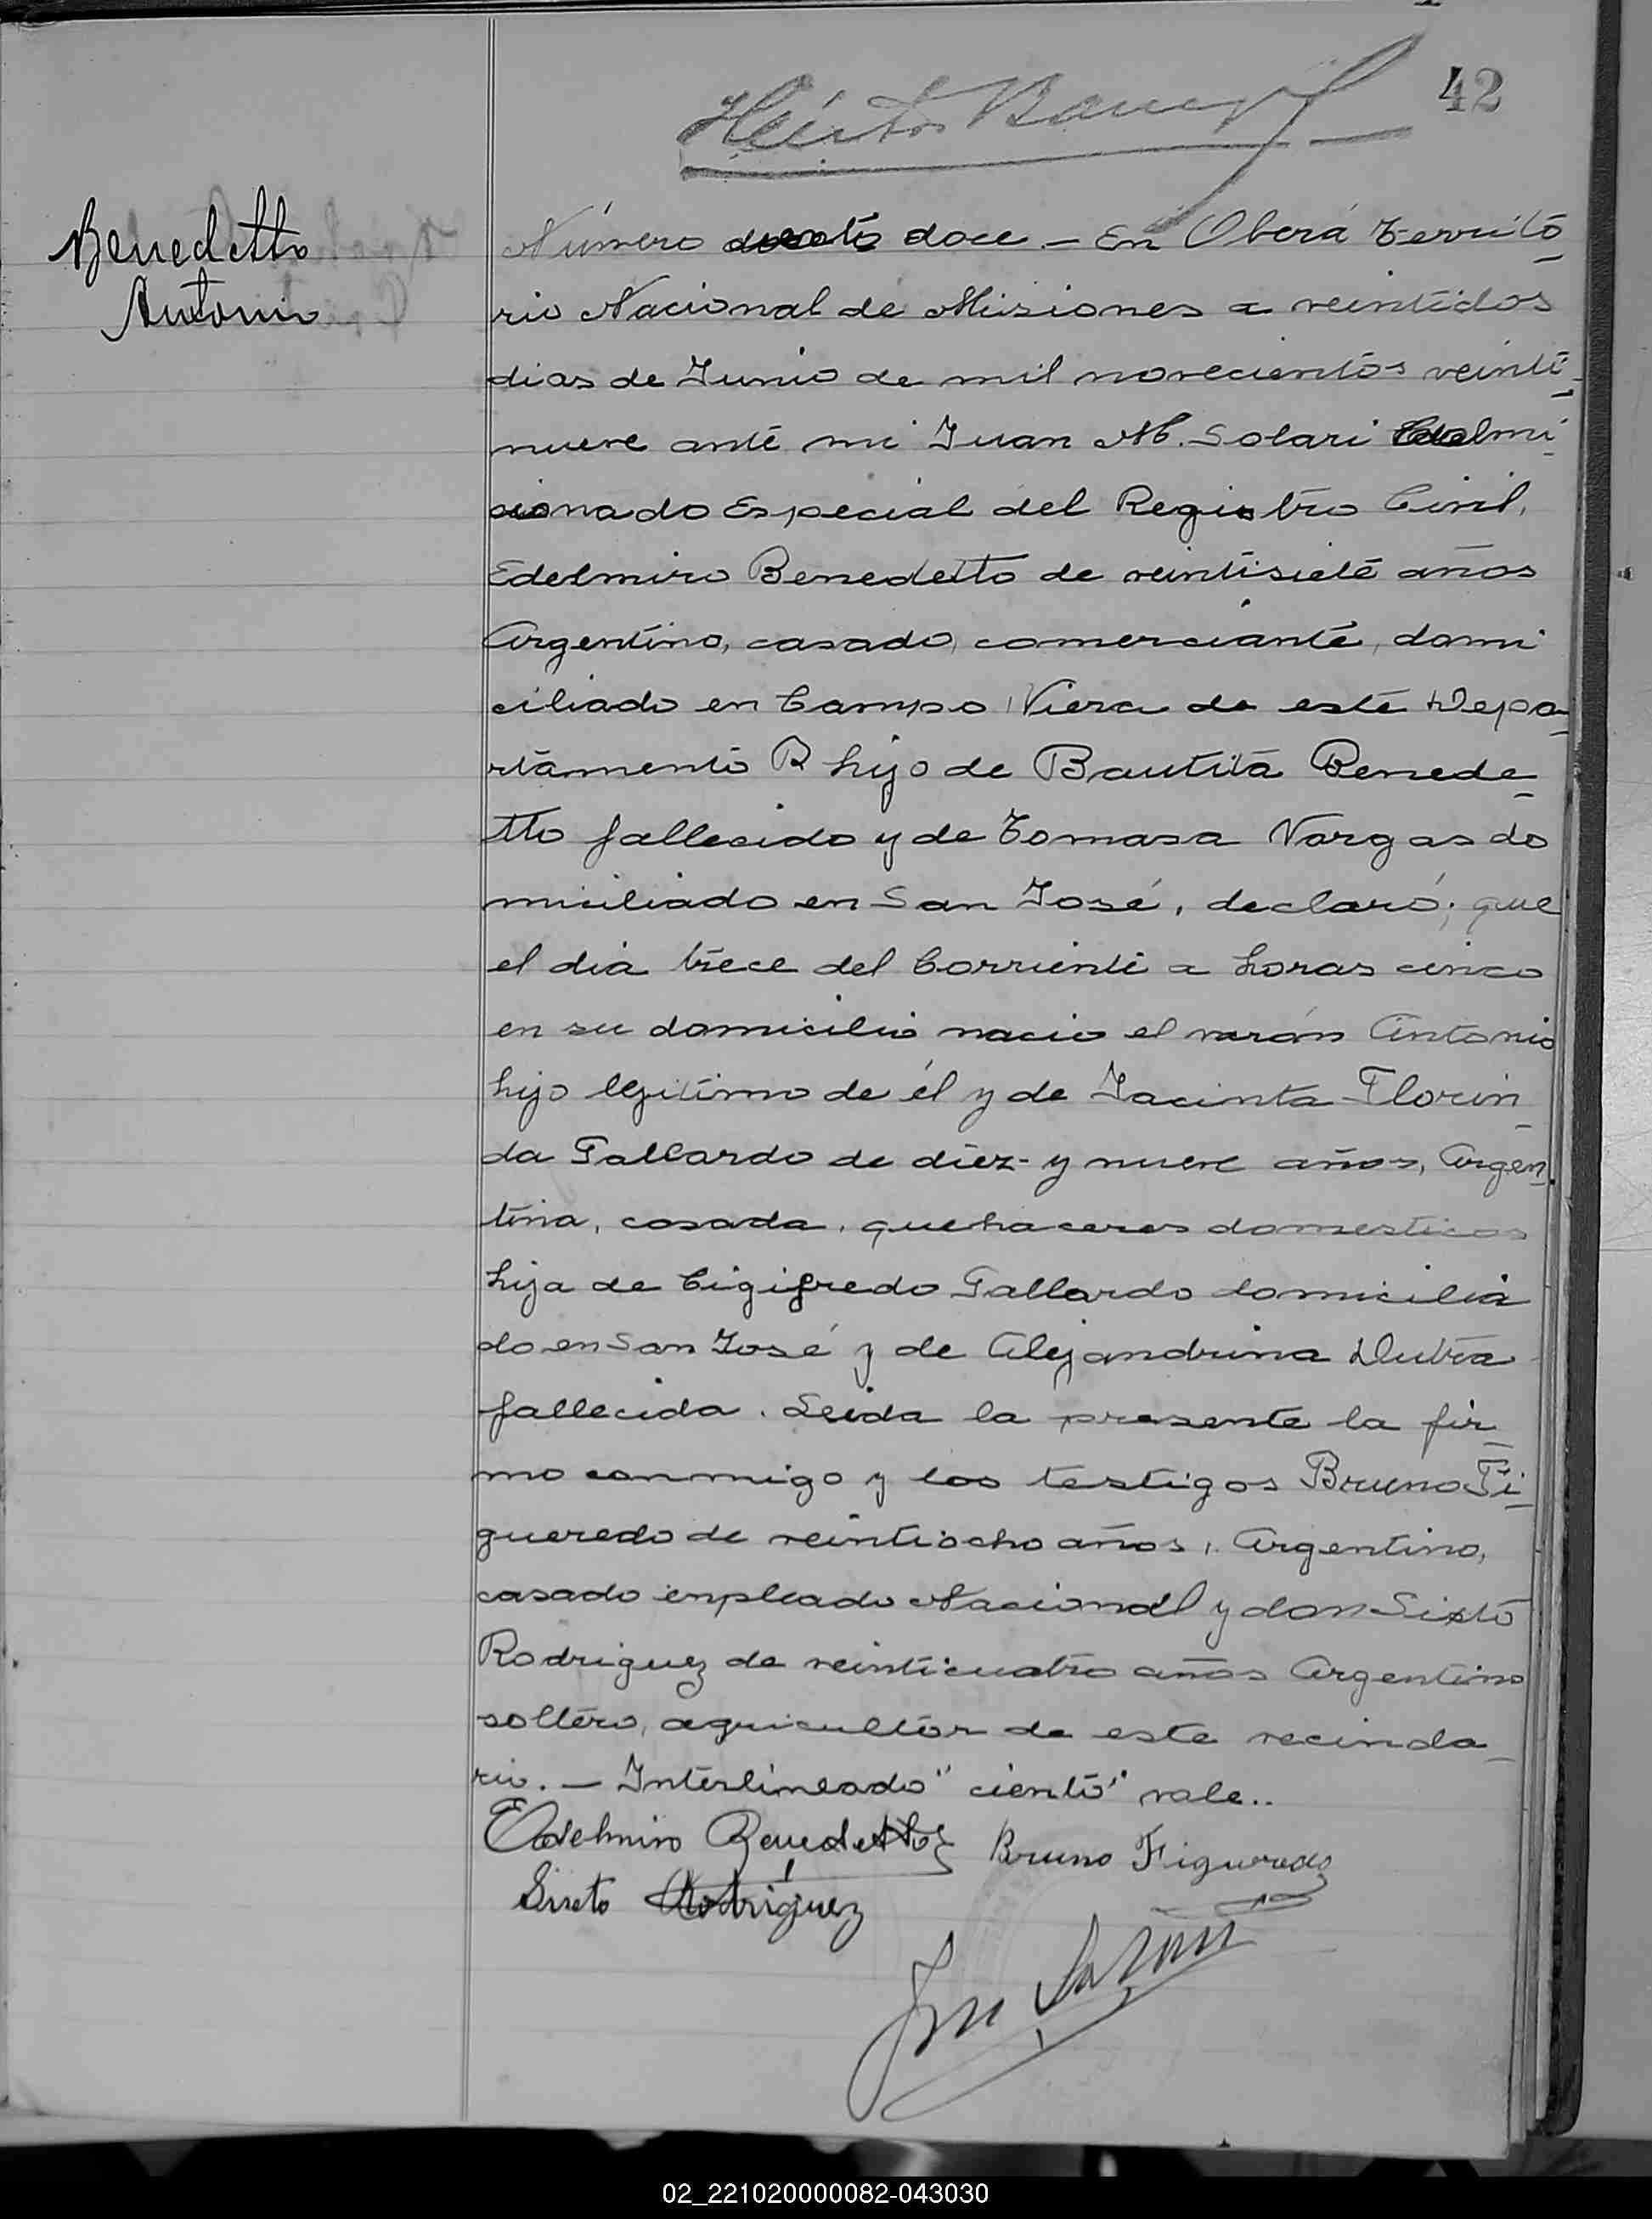 42
Benedetto
Antonio
Número doce — En Oberá Territo
rio Nacional de Misiones a veintidos
dias de Junio de mil novecientos veinti
nueve ante mi Juan M. Solari
cionado Especial del Registro Civil,
Edelmiro Benedetto de veintisiete años
Argentino, casado, comerciante, domi
ciliado en Campo Viera de este Depa
rtamento hijo de Bautita Benede
tto fallecido y de Tomasa Vargas do
miciliado en San José, declaró; que
el dia trece del Corriente a horas cinco
en su domicilio nacio el varón Antonio
hijo legitimo de él y de Jacinta Florin
da Gallardo de diez y nueve años, Argen
tina, casada, quehaceres domesticos
hija de Cigifredo Gallardo domicilia
do en San José y de Alejandrina Dutra
fallecida. Leida la presente la fir
mo conmigo y los testigos Bruno Fi
gueredo de veintiocho años, Argentino,
casado enpleado Nacional y don Sixto
Rodriguez de veinticuatro años Argentino
soltero, agricultor de este vecinda
rio. — Interlineado "ciento" vale..
Edelmiro Benedetto Bruno Figueredo
Sixto Rodríguez
02_221020000082-043030